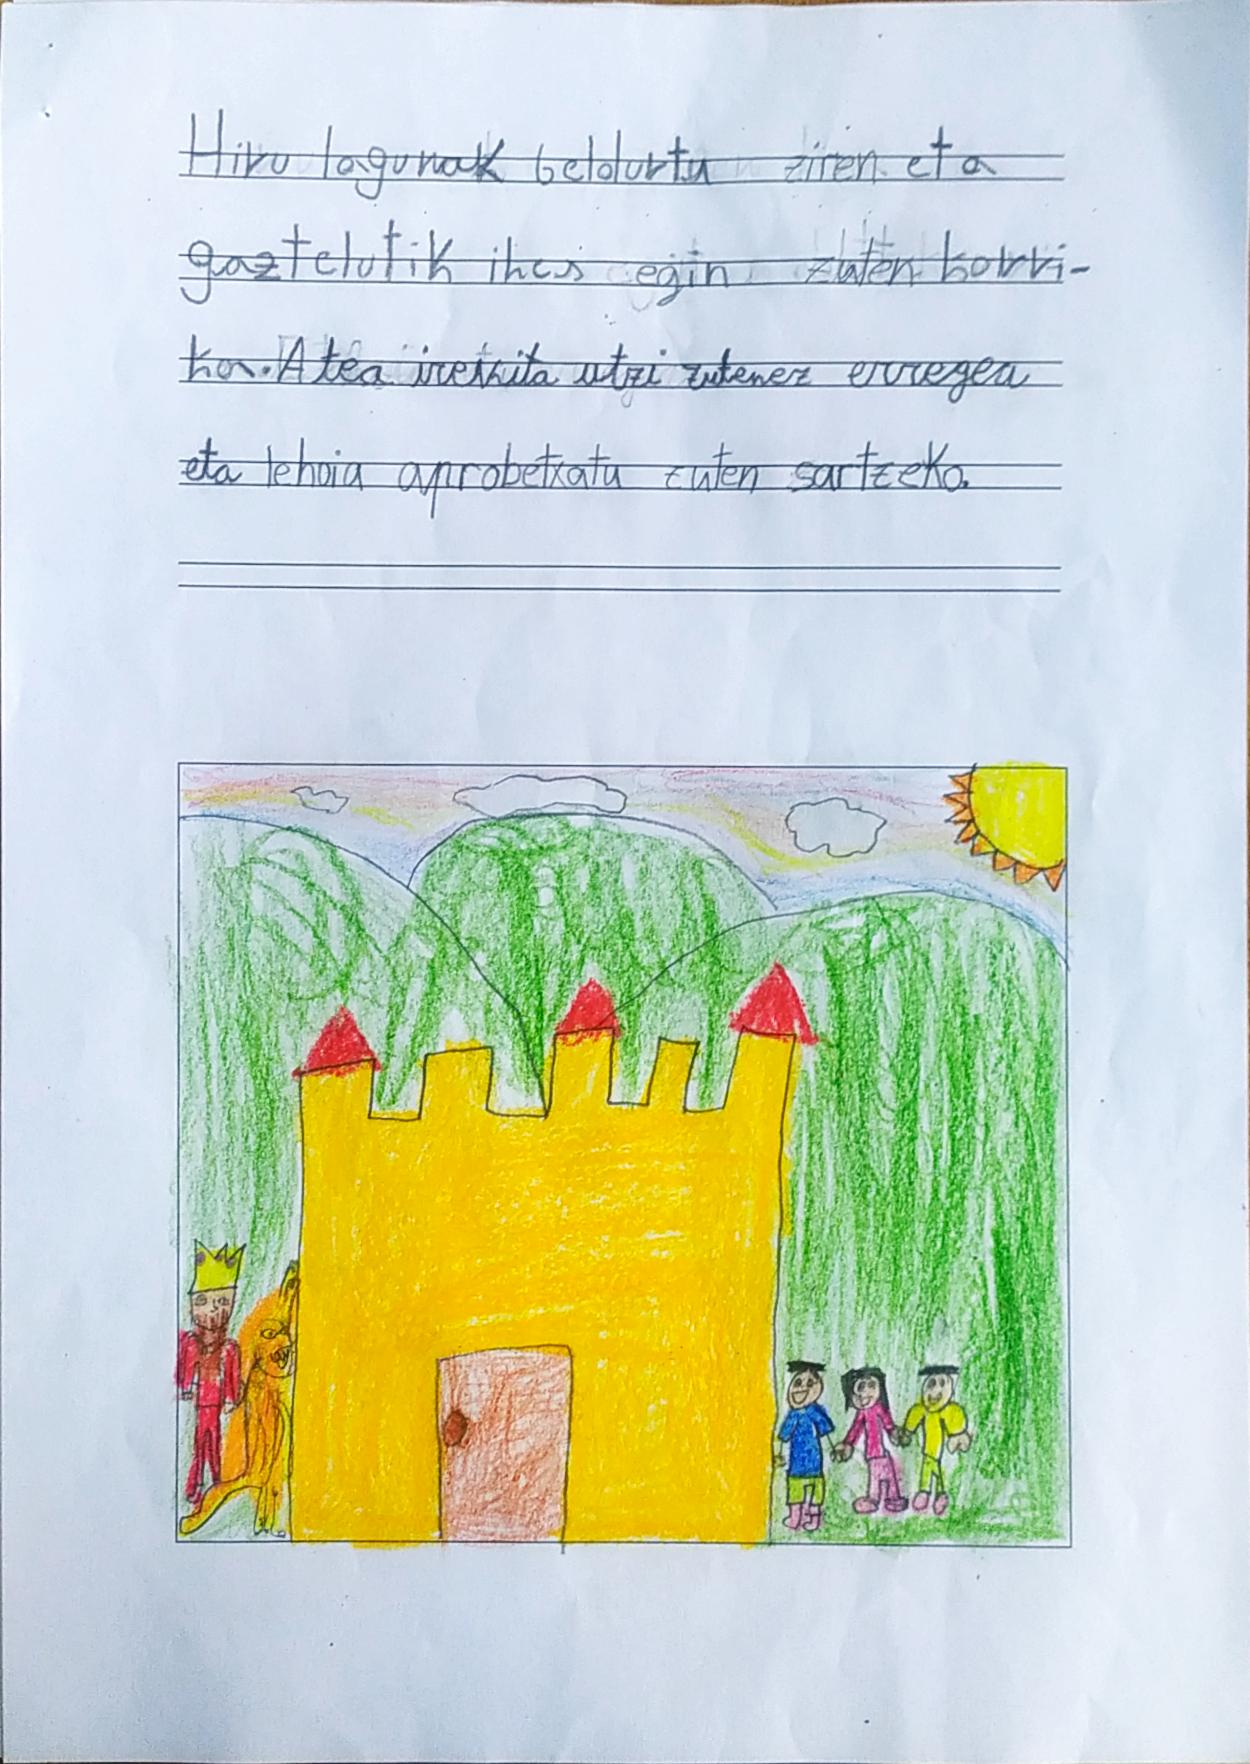 Hiru lagunak beldurtu ziren eta
gaztelutik ihes egin zuten korri-
ka. Atea irekita utzi zutenez erregea
eta lehoia aprobetxatu zuten sartzeko.